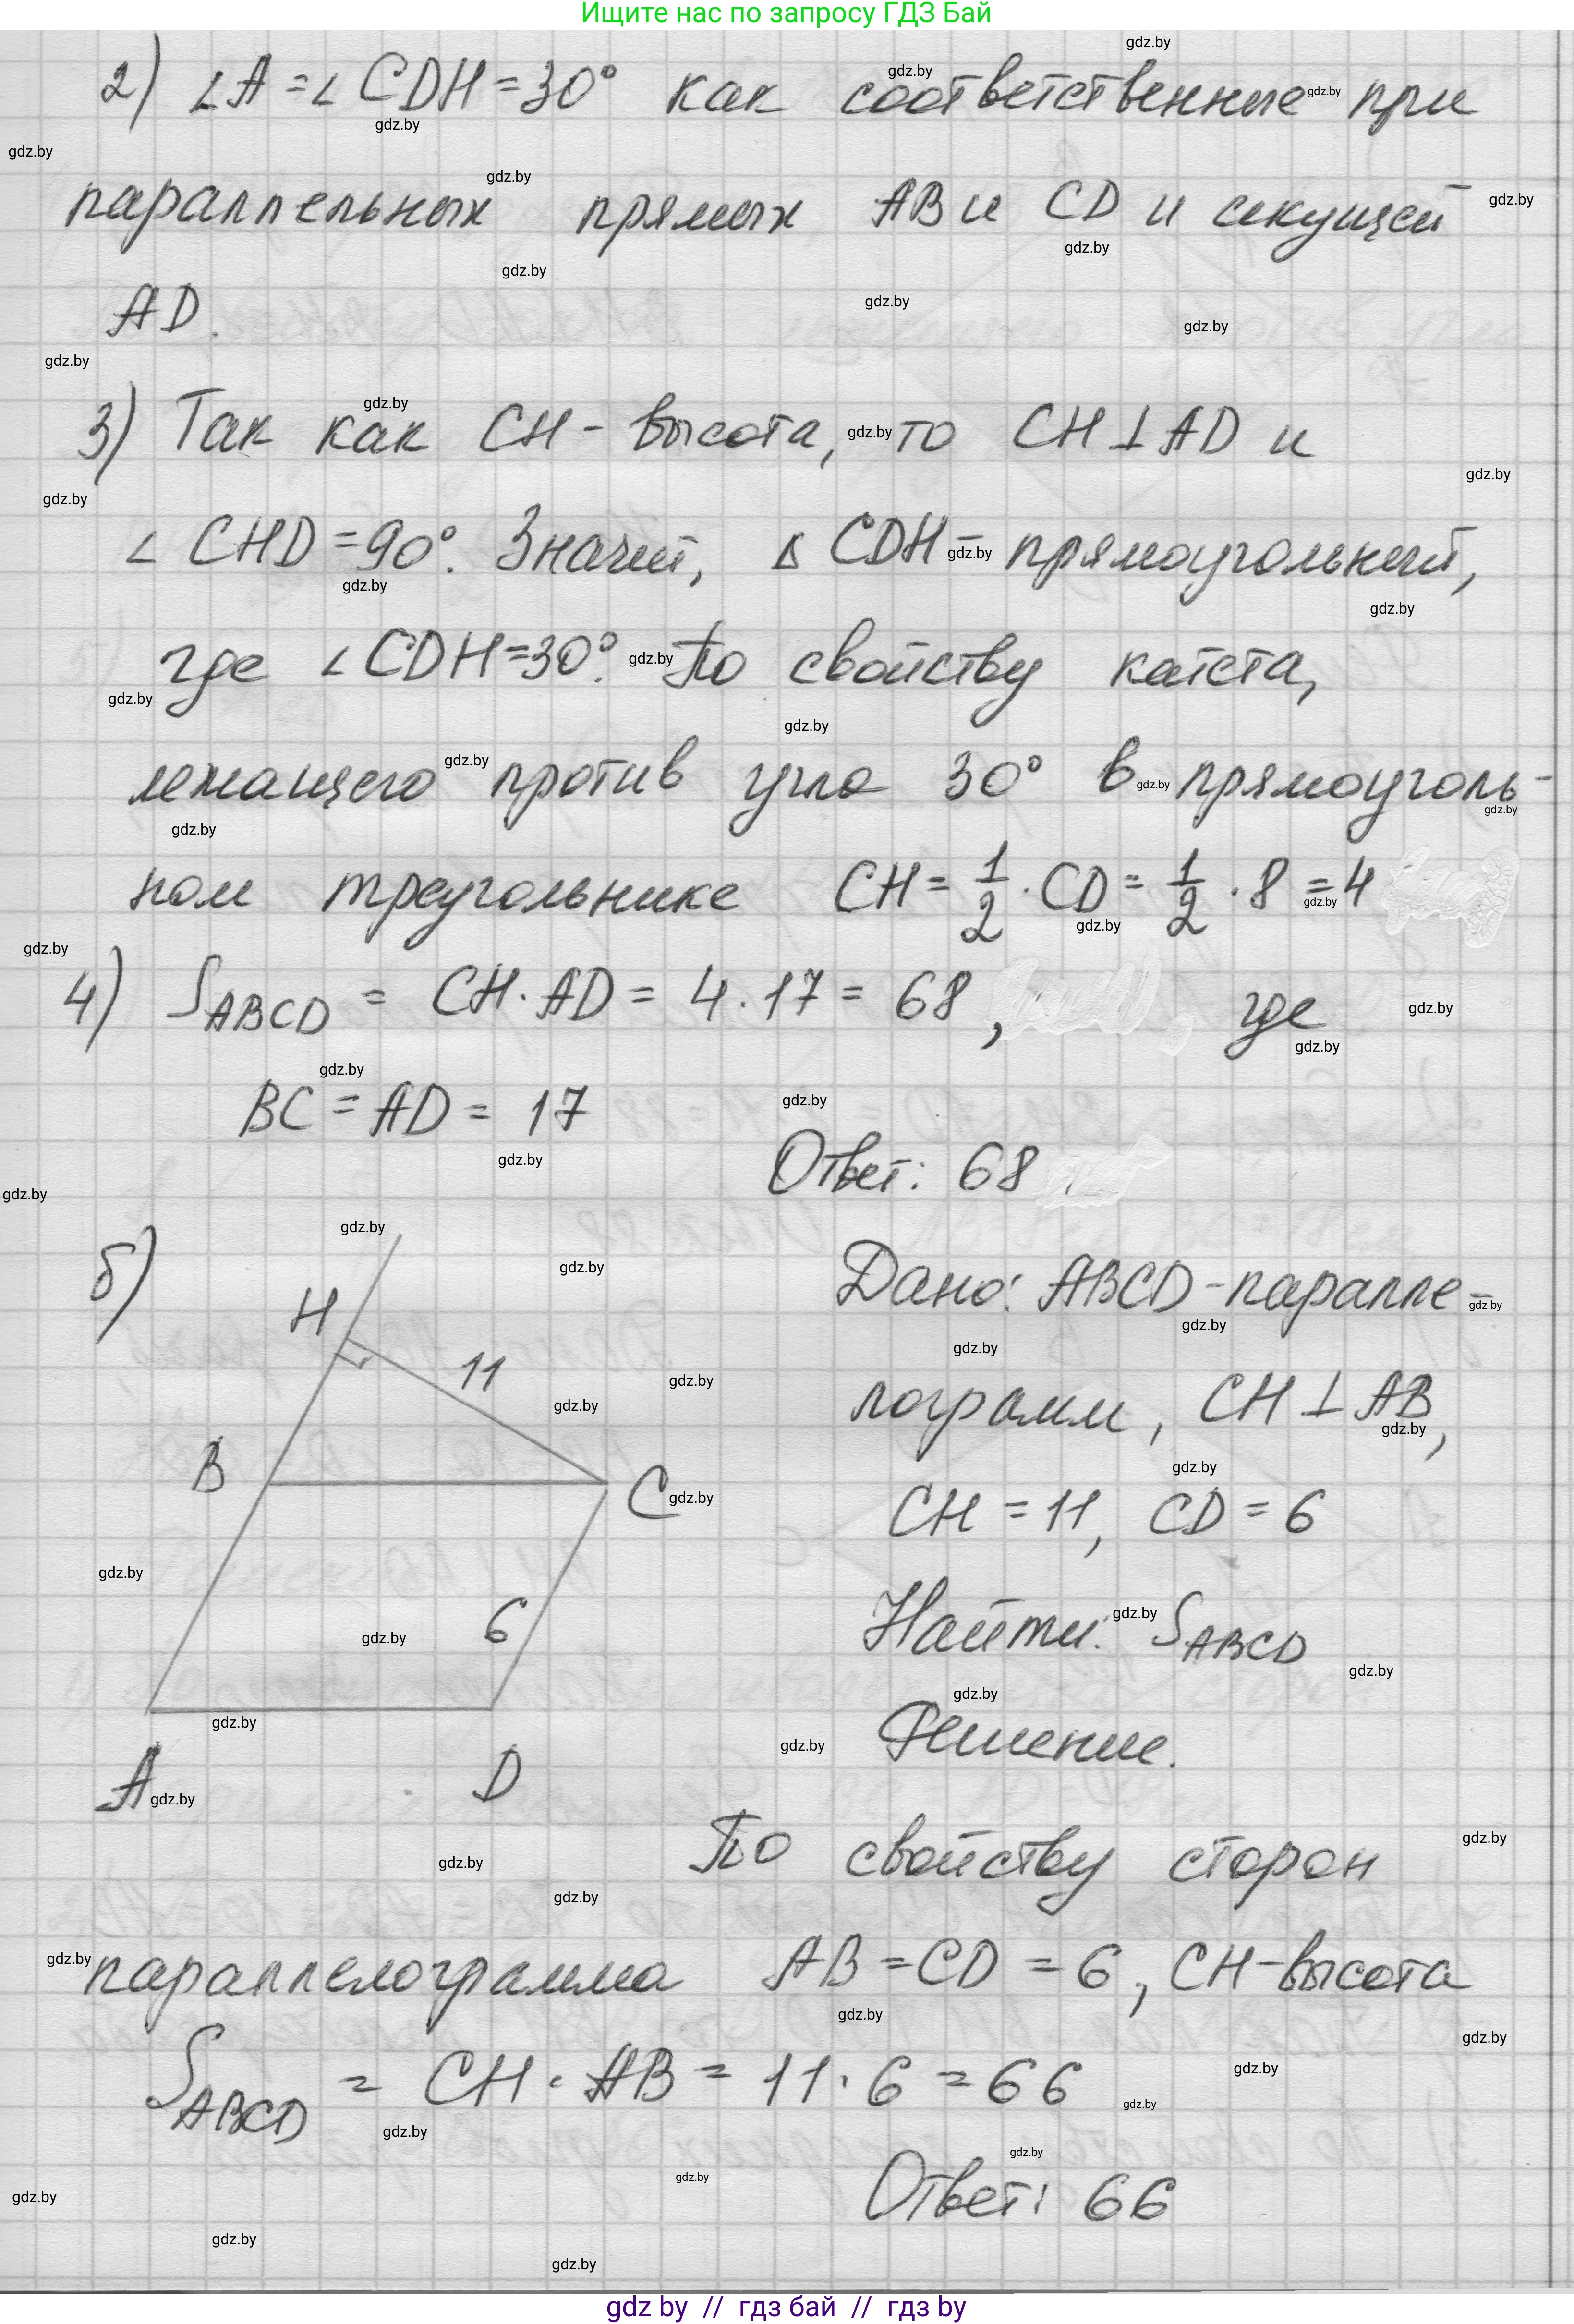 Ищите нас по запросу ГДЗ Бай
2) ∠A = ∠CDH = 30° как соответственные при
параллельных прямых AB и CD и секущей
AD.
3) Так как CH - высота, то CH ⊥ AD и
∠CHD = 90°. Значит, Δ CDH - прямоугольный,
где ∠CDH = 30°. По свойству катета,
лежащего против угла 30° в прямоуголь-
ном треугольнике CH = 1/2 · CD = 1/2 · 8 = 4
4) S_ABCD = CH · AD = 4 · 17 = 68, где
BC = AD = 17
Ответ: 68
б)
H
11
B
C
6
A
D
Дано: ABCD - паралле-
лограмм, CH ⊥ AB,
CH = 11, CD = 6
Найти: S_ABCD
Решение.
По свойству сторон
параллелограмма AB = CD = 6, CH - высота
S_ABCD = CH · AB = 11 · 6 = 66
Ответ: 66
gdz by // гдз бай // гдз by